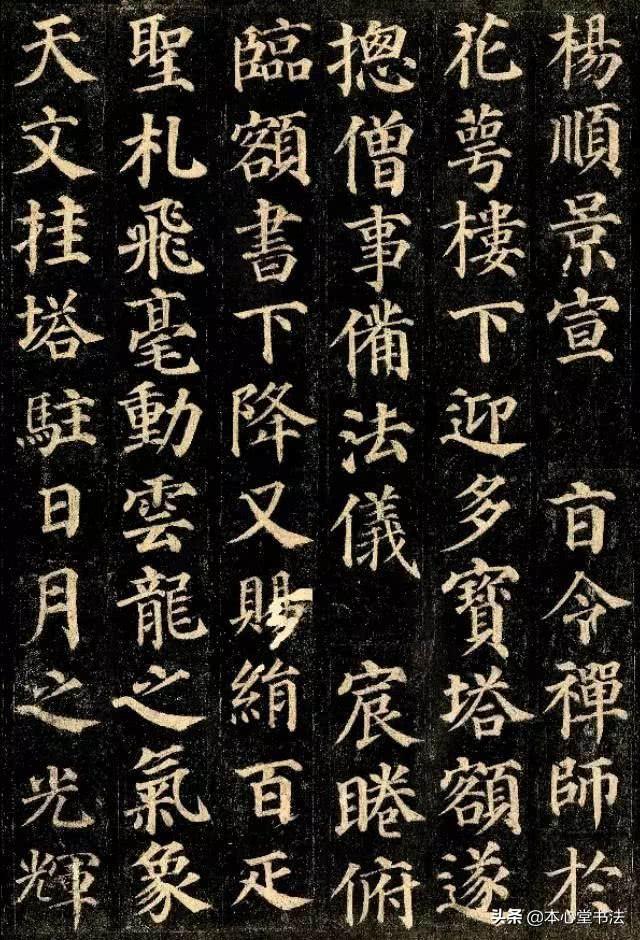 楊順景宣 㫖令禪師於
花萼樓下迎多寶塔額遂
摠僧事備法儀 宸睠俯
臨額書下降又賜絹百疋
聖札飛毫動雲龍之氣象
天文挂塔駐日月之光輝
头条 @本心堂书法